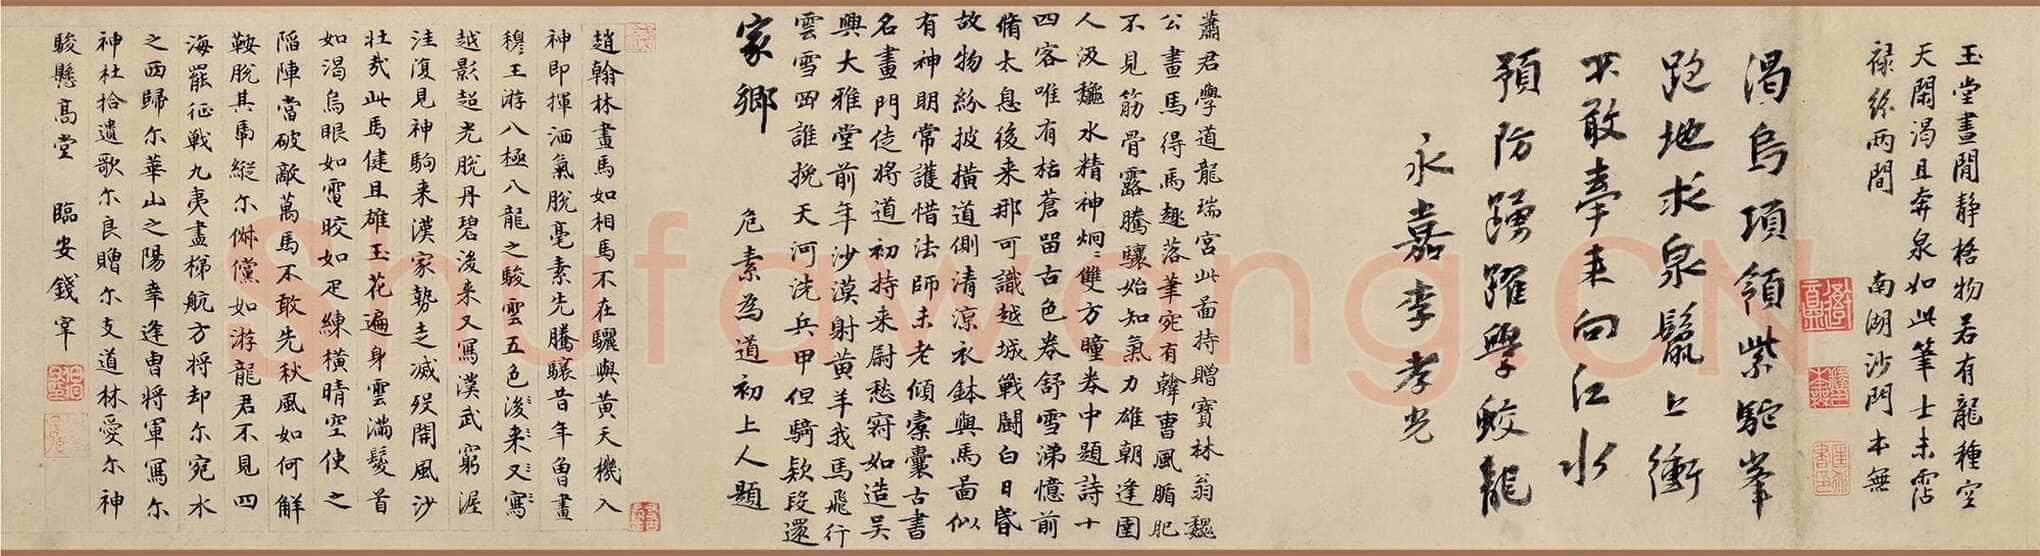 玉堂晝閒静格物若有龍種空
天閑渴且奔泉如此筆士未霑
禄絲两間 南湖沙門本無
渴烏項領紫駝峯
跑地求泉鬣上衝
不敢牽来向江水
預防踴躍學蛟龍
永嘉李孝光
蕭君學道龍瑞宫此畫持贈寶林翁魏
公畫馬得馬趣落筆宛有韓曹風腯肥
不見筋骨露騰驤始知氣力雄朝逢圉
人汲龝水精神炯ミ雙方瞳卷中題詩十
四客唯有栝蒼留古色卷舒雪涕憶前
脩太息後来那可識越城戰鬪白日昏
故物紛披横道側清凉衣鉢與馬啚似
有神明常護惜法師未老傾橐囊古書
名畫門徒將道初持来尉愁窘如造吴
興大雅堂前年沙漠射黄羊我馬飛行
雲雪四誰挽天河洗兵甲但騎欵段還
家鄉 危素為道初上人題
趙翰林畫馬如相馬不在驪與黄天機入
神即揮洒氣脱毫素先騰驤昔年曾畫
穆王游八極八龍之駿雲五色後ミ来ミ又ミ寫ミ
越影超光脱丹碧後来又寫漢武窮渥
洼復見神駒来漢家勢走滅歿開風沙
壮哉此馬健且雄玉花遍身雲滿鬉首
如渴烏眼如電皎如疋練横晴空使之
陷陣當破敵萬馬不敢先秋風如何解
鞍脱其馽縱尔俶儻如游龍君不見四
海罷征戰九夷盡梯航方將却尔宛水
之西歸尔華山之陽幸逢曹將軍寫尔
神杜拾遺歌尔良贈尔支道林愛尔神
駿懸髙堂 臨安錢宰
Shufawang.CN